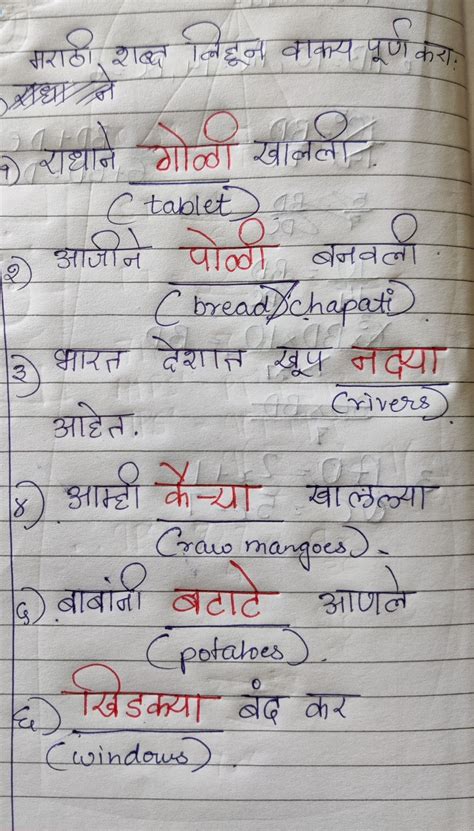 मराठी शब्द लिहून वाक्य पूर्ण करा.
राधा ने
१) राधाने गोळी खाल्ली.
(tablet)
२) आजीने पोळी बनवली.
(bread/chapati)
३) भारत देशात खूप नद्या
(rivers)
आहेत.
४) आम्ही कैऱ्या खाल्ल्या
(raw mangoes).
५) बाबांनी बटाटे आणले
(potatoes).
६) खिडक्या बंद कर
(windows)